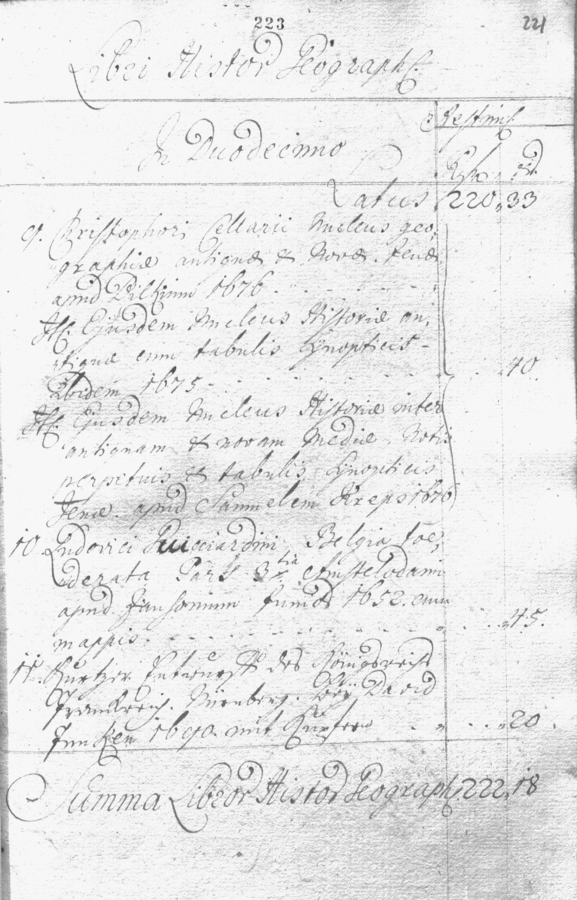 223
221
Libri Histor Geograph
Æstim
In Duodecimo
Latus 220,,33
9. Christophori Cellarii Nucleus geo,
graphiæ antiquæ & Novæ. Jenæ
apud 1676
It. Ejusdem Nucleus Historiæ an,
tiquæ cum tabulis Synopticis
Ibidem 1675 40
It. Ejusdem Nucleus Historiæ inter
antiquam & novam Mediæ. Notis
perpetuis & tabulis Synopticis
Jenæ. apud Samuelem Krebs 1676
10 Ludovici Guicciardini Belgia foe,
derata Pars 3tia Amstelodami
apud Janssonium Juniorem 1652. cum
mappis. 45
11. Kurtzer des Königreichs
Franckreich. Nürnberg. Bey David
Funcken 1690. mit Kupfern 20
Summa Libror Histor Geograph 222,18